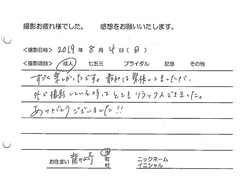 撮影お疲れ様でした。　感想をお願いいたします。
<撮影日時> 2019年 8月 4日 (日)
<撮影項目> 成人 七五三 ブライダル 記念 その他
ずごく楽しかったです。最初は緊張していましたが、
外で撮影していくうちに、とてもリラックスできました。
ありがとうございました!!
お住まい 市 町 村
ニックネーム
イニシャル